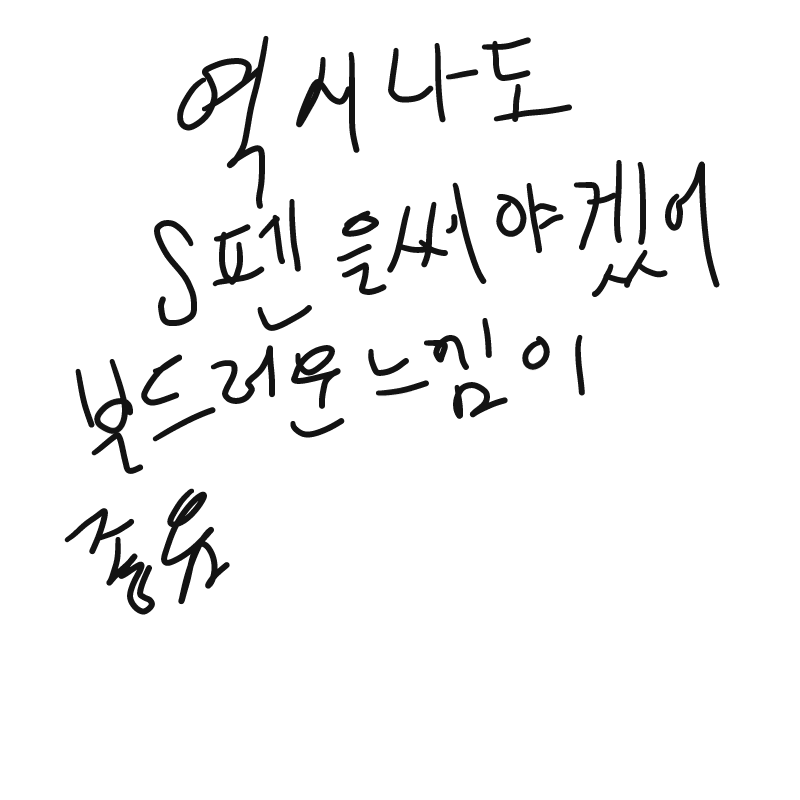 역시나도
S펜을써야겠어
부드러운느낌이